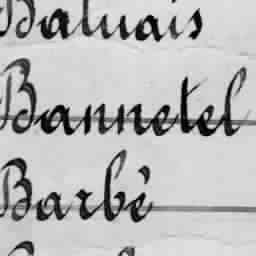 Baluais
Bannetel
Barbé